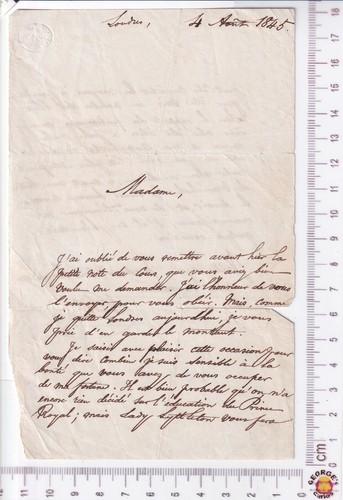 Londres, 4 Août 1845.
Madame,
J'ai oublié de vous remettre avant hier la
petite note du Cous, que vous avez bien
voulu me demander. J'ai l'honneur de vous
l'envoyer pour vous obéir. Mais comme
je quitte Londres aujourd'hui, je vous
prie d'en garder le montant.
Je saisis avec plaisir cette occasion pour
vous dire combien je suis sensible à la
bonté que vous avez de vous occuper
de ma fortune. Il est bien probable qu'on n'a
encore rien décidé sur l'éducation du Prince
Royal; mais Lady Lyttleton vous fera
cm
0 1 2 3 4 5 6 7 8 9 10 11 12 13 14 15 16 17 18
GEORGE'S